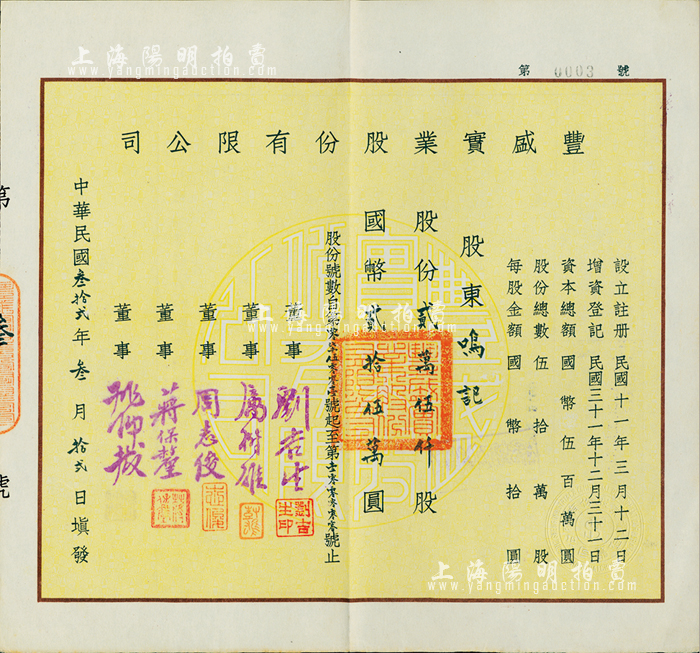 上海陽明拍賣
www.yangmingauction.com
第 0003 號
豐盛實業股份有限公司
設立註册 民國十一年三月十二日
增資登記 民國三十一年十二月三十一日
資本總額 國幣伍百萬圓
股份總數 伍拾萬股
每股金額 國幣拾圓
股東鳴記
股份貳萬伍仟股
國幣貳拾伍萬圓
股份號數自第
號起至第
號止
董事 劉吉生
董事
董事 周志俊
董事 蔣保釐
董事
中華民國叁拾弍年叁月拾弍日填發
第
叁
號
上海陽明拍賣
www.yangmingauction.com
上海陽明拍賣
www.yangmingauction.com